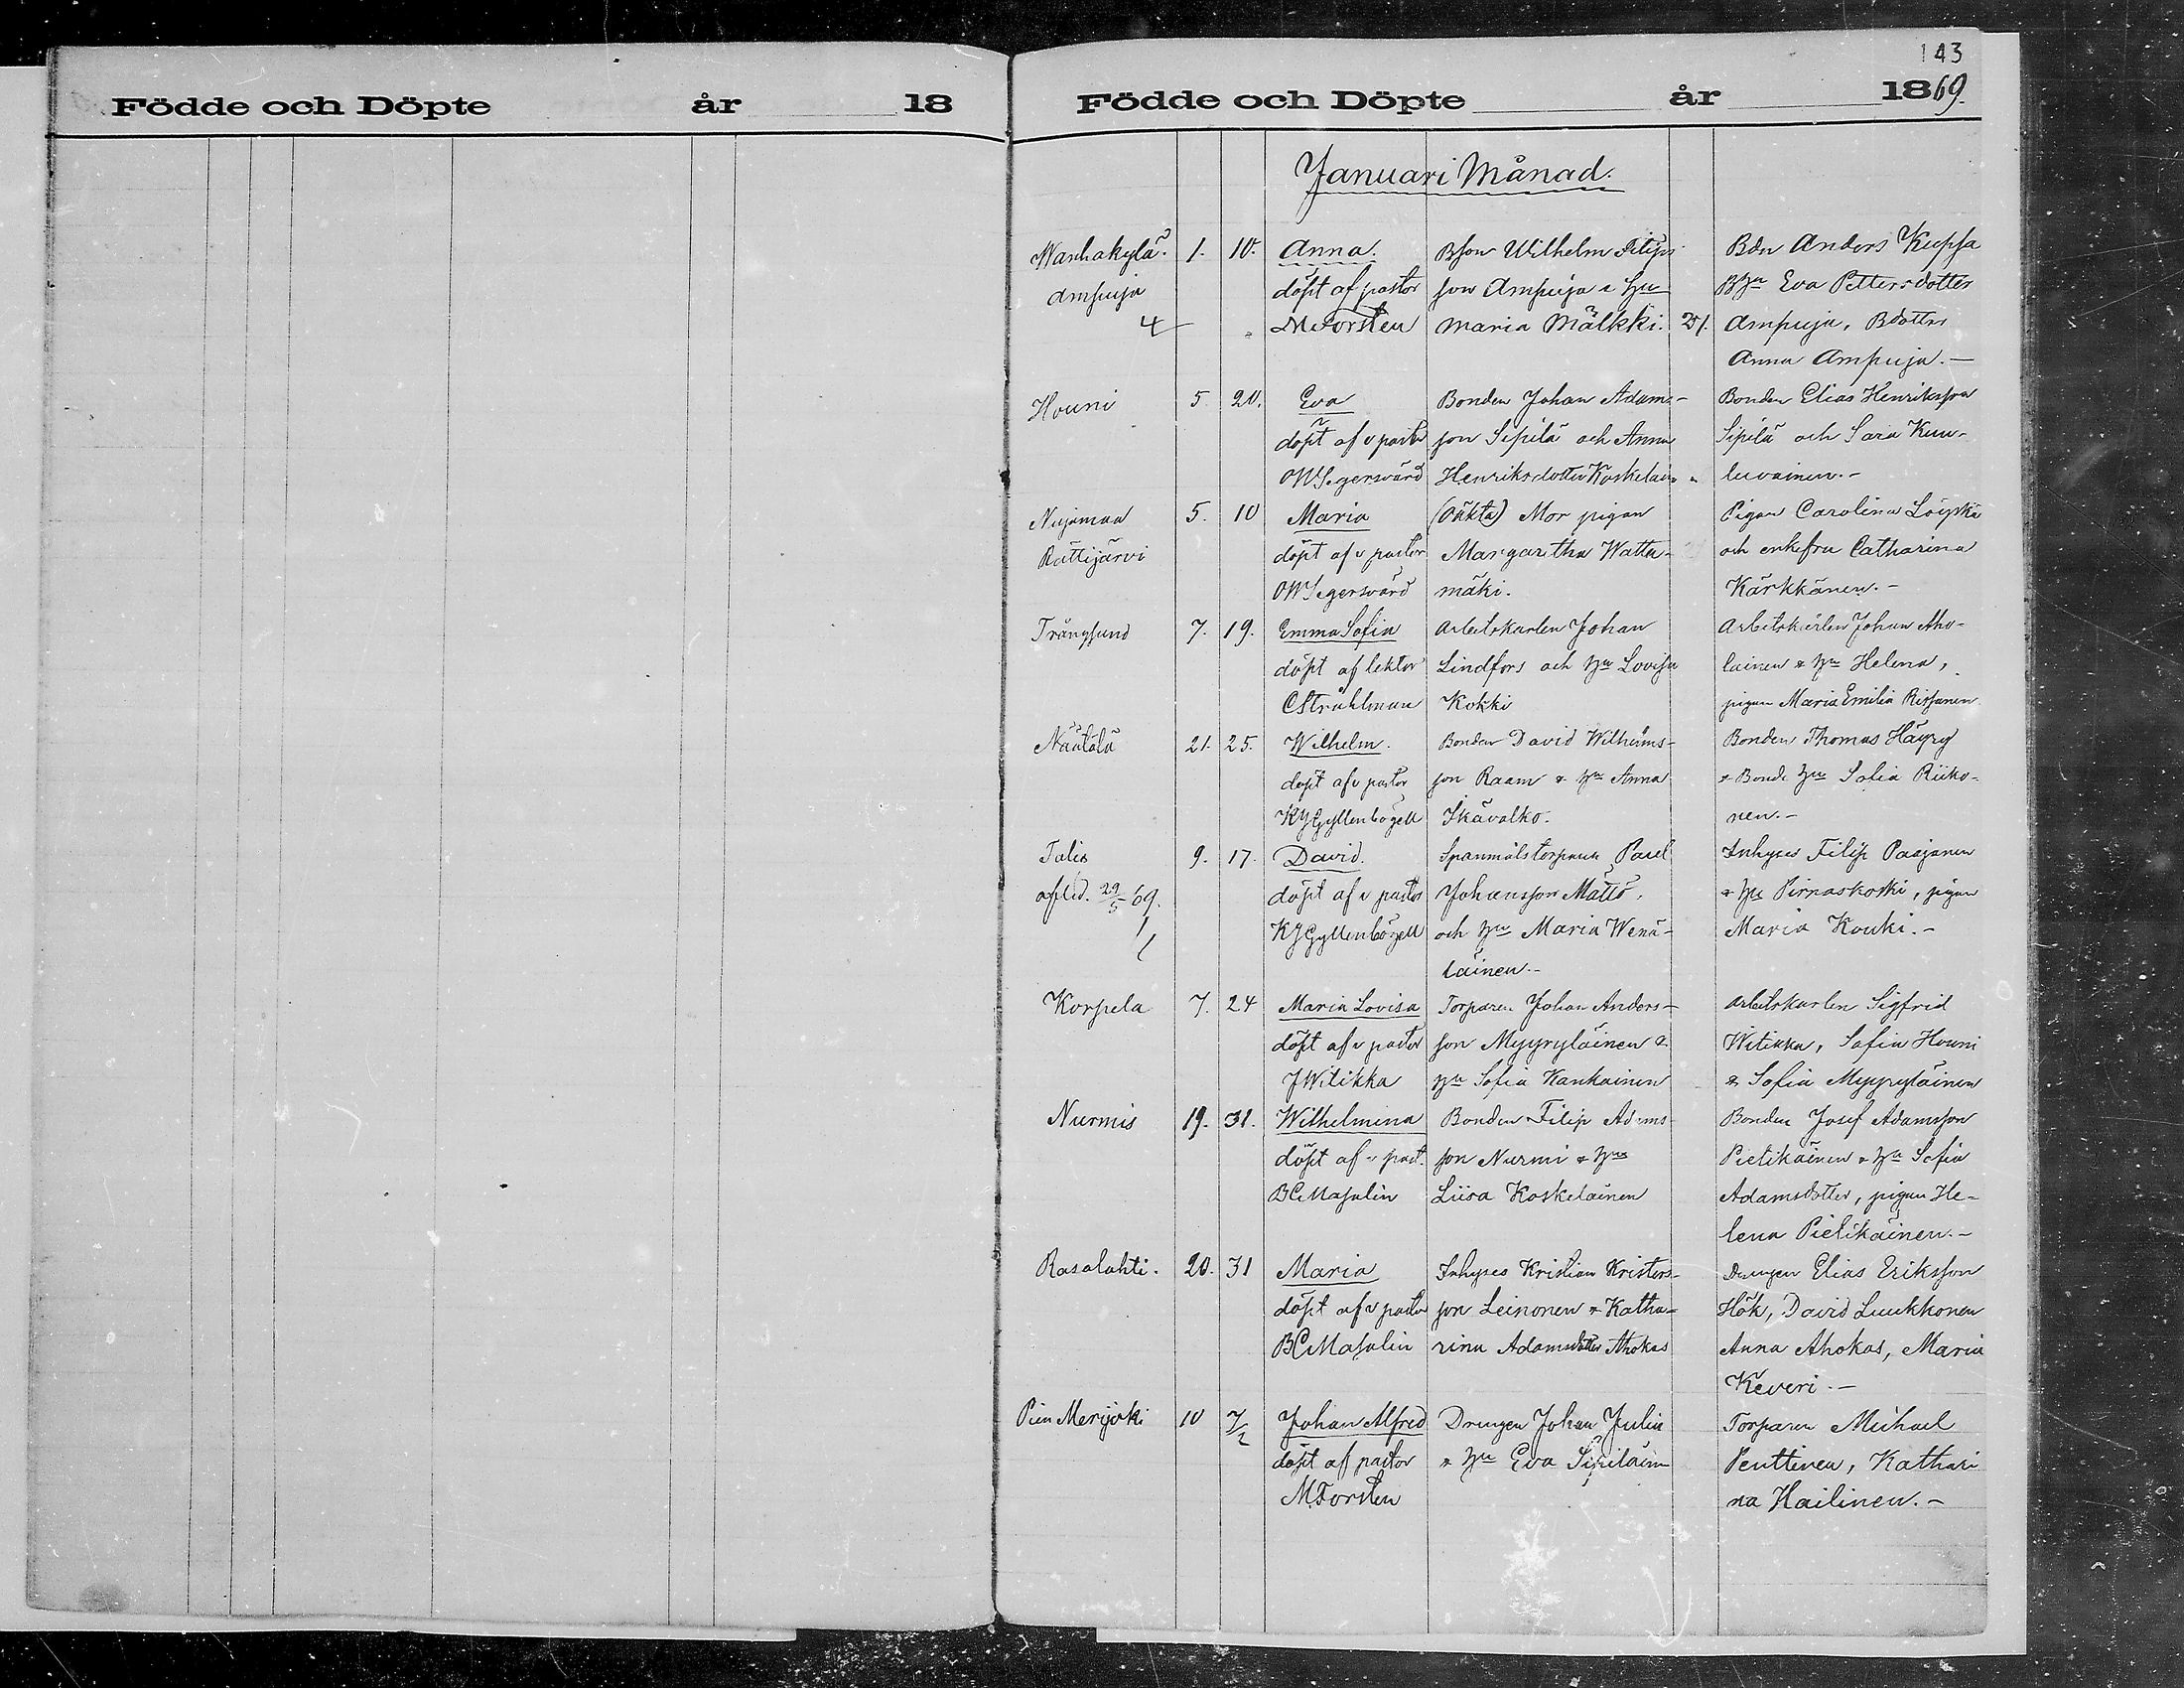 Födde och Döpte år 18
143
Födde och Döpte år 1869.
Januari Månad.
Wanhakylä. 1. 10. Anna. Bson Wilhelm Filips- Bdn Anders Kupsa
Ampuja döpt af pastor son Ampuja & hu BHu Eva Pettersdotter
4 M Forsten Maria Mälkki. 21. Ampuja, Bdotter
Anna Ampuja.—
Houni 5. 20. Eva Bonden Johan Adams- Bonden Elias Henriksson
döpt af v pastor son Sipilä och Anna Sipilä och Sara Kuu-
OW Segersvärd Henriksdotter Koskelain luvainen.-
Nuijamaa 5. 10 Maria (Oäkta) Mor pigan Pigan Carolina
Rättijärvi döpt af v pastor Margaretha Watta- och enkefru Catharina
OW Segersvärd mäki. Kärkkänen.-
Trångsund 7. 19. Emma Sofia Arbetskarlen Johan Arbetskarlen Johan Aho-
döpt af lektor Lindfors och hu Lovisa lainen & hu Helena,
C Stråhlman Kokki pigan Maria Emilia Rissanen
Näätälä 21. 25. Wilhelm. Bonden David Wilhelms- Bonden Thomas Häyry
döpt af v pastor son Raam & hu Anna & Bonde hu Sofia Riiko-
KJ Gyllenbögell Ikävalko. nen.-
Talis 9. 17. David. Spanmålstorparen Paul Inhyses Filip Paajanen
afled. 29/5 69. döpt af v pastor Johansson Mättö, & hu Pirnaskoski, pigan
1 KJ Gyllenbögell och hu Maria Wenä- Maria Kouki.-
läinen.-
Korpela 7. 24 Maria Lovisa Torparen Johan Anders- Arbetskarlen Sigfrid
döpt af v pastor son Myyryläinen & Witikka, Sofia Houni
J Witikka hu Sofia Kankainen & Sofia Myyryläinen
Nurmis 19. 31. Wilhelmina Bonden Filip Adams- Bonden Josef Adamsson
döpt af v past. son Nurmi & hu Pietikäinen & hu Sofia
BC Masalin Liisa Koskelainen Adamsdotter, pigan He-
lena Pietikäinen.-
Rasalahti. 20. 31 Maria Inhyses Kristian Kristers- Drengen Elias Eriksson
döpt af v pastor son Leinonen & Katha- Hök, David Luukkonen
BC Masalin rina Adamsdotter Ahokas Anna Ahokas, Maria
Keveri.—
Pien Merijoki 10 7/2 Johan Alfred Drengen Johan Julin Torparen Michael
döpt af pastor & hu Eva Sipiläin Penttinen, Kathari
M. Forsten na Hailinen.-